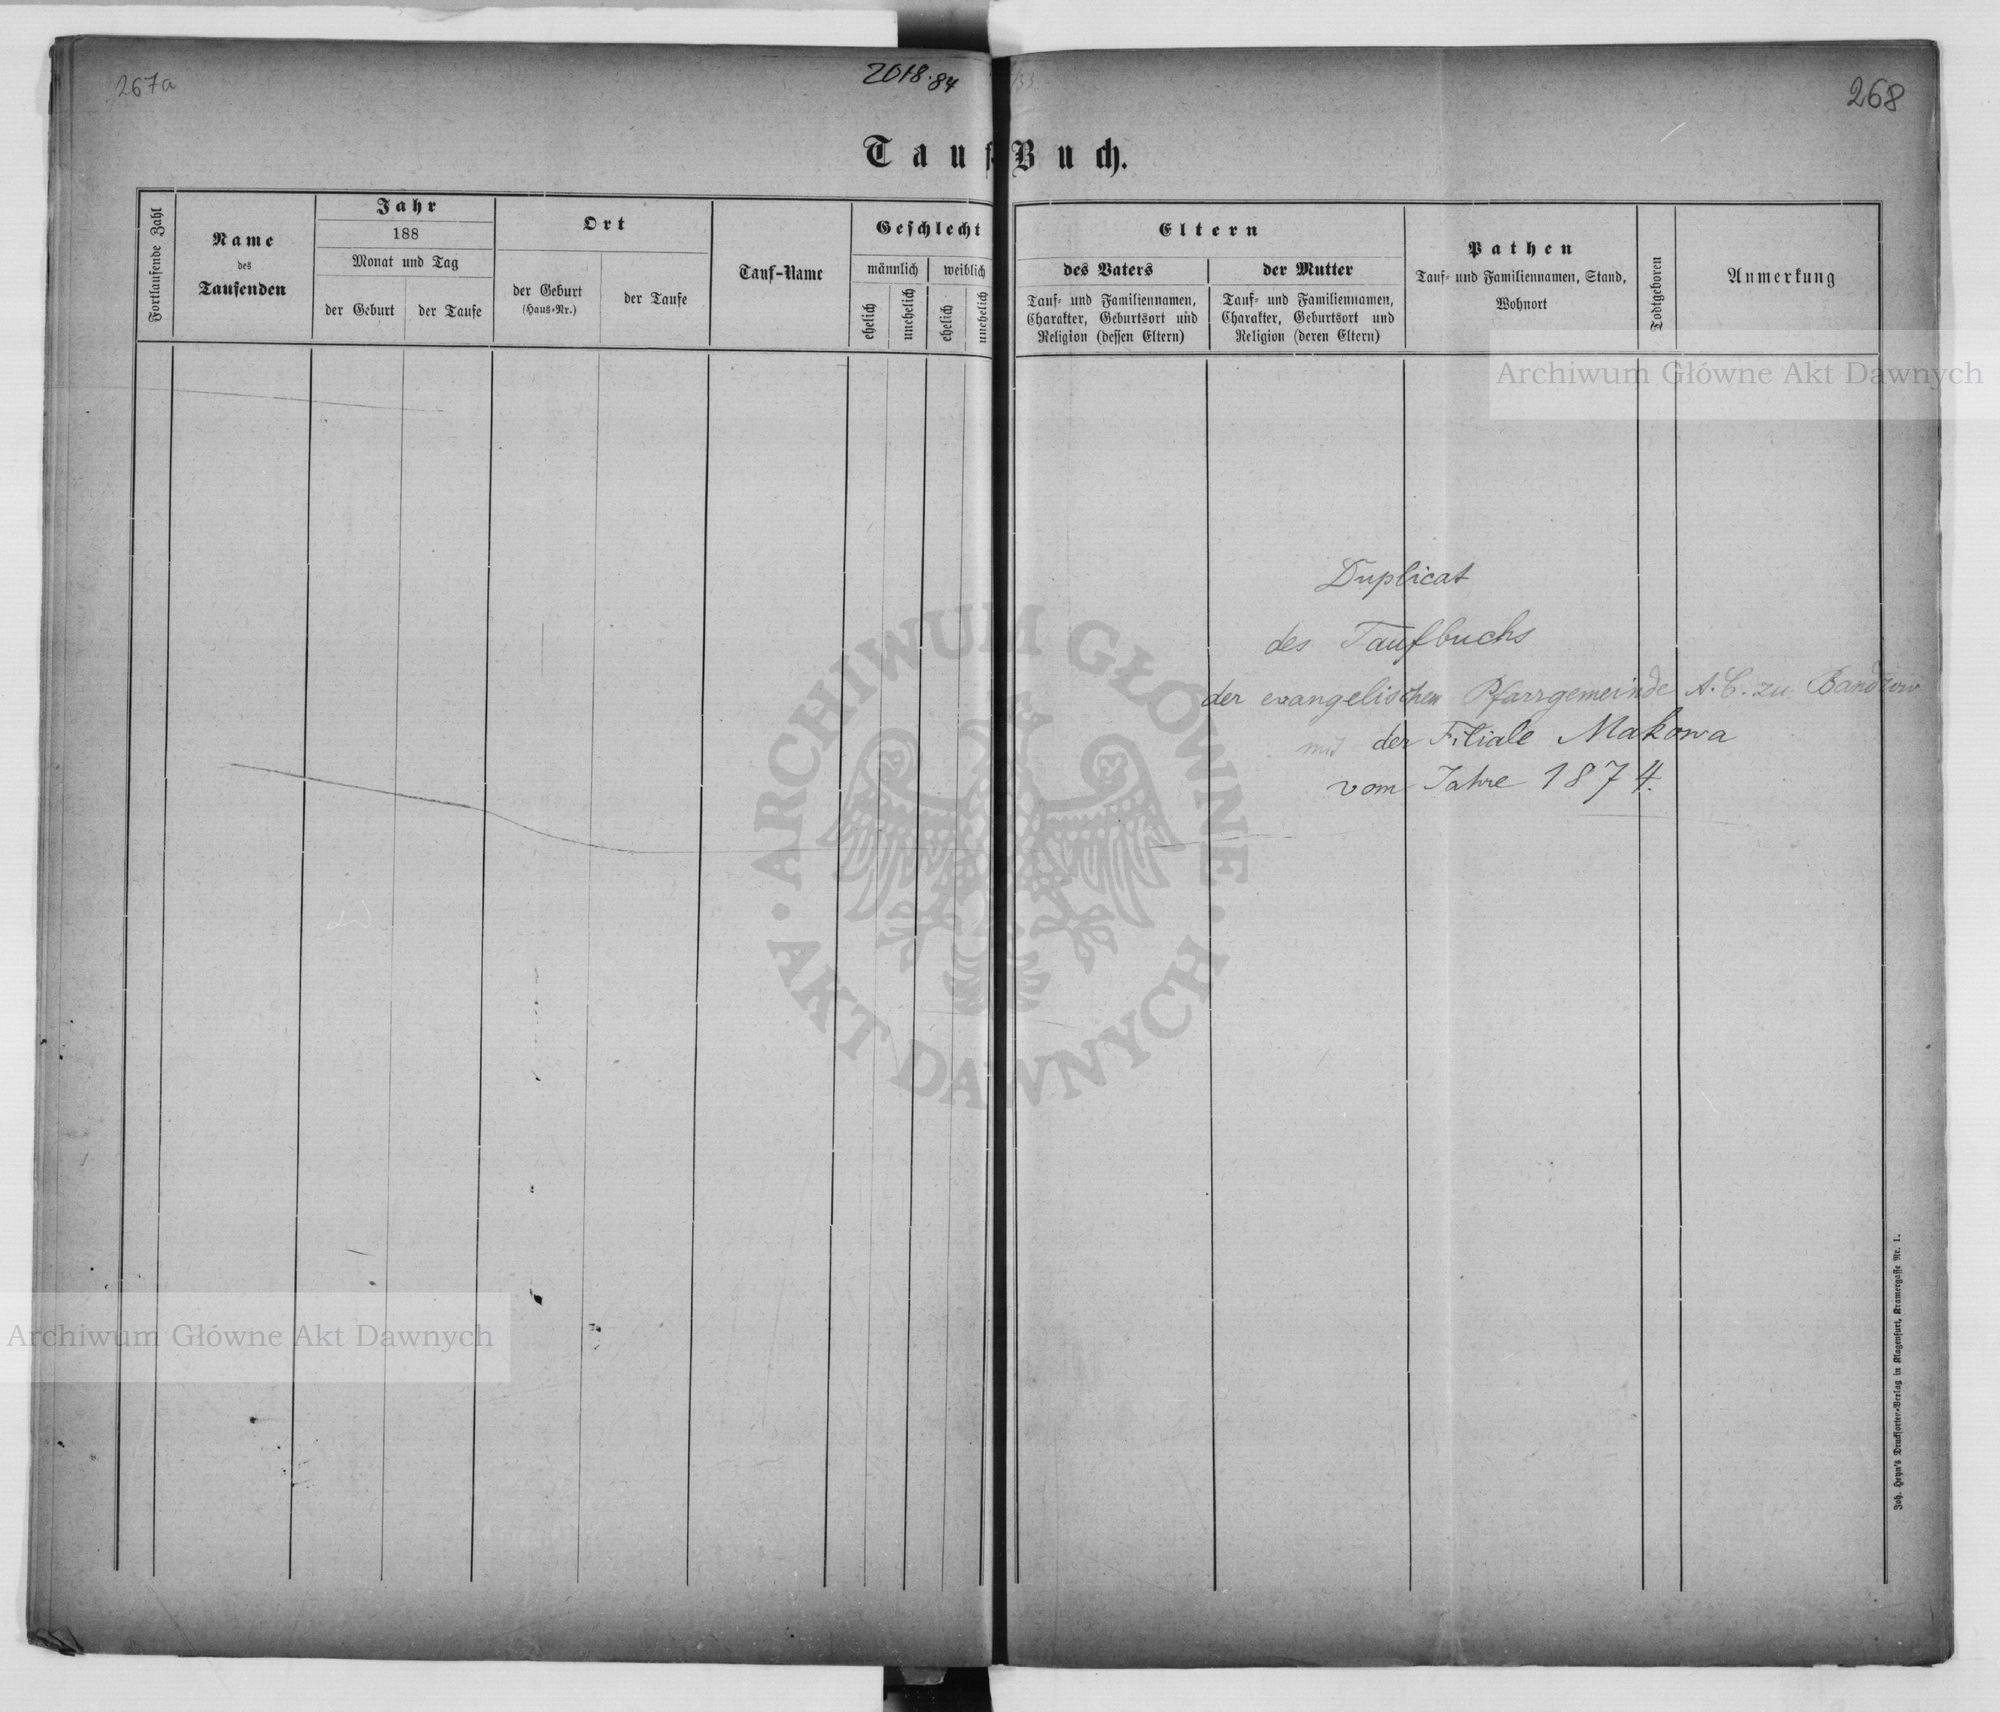 267a
2018.84
268
Tauf-Buch.
Fortlaufende Zahl
Name
des
Taufenden
Jahr
188
Monat und Tag
der Geburt
der Taufe
Ort
der Geburt
(Haus-Nr.)
der Taufe
Tauf-Name
Geschlecht
männlich
weiblich
ehelich
unehelich
ehelich
unehelich
Eltern
des Vaters
Tauf- und Familiennamen,
Charakter, Geburtsort und
Religion (dessen Eltern)
der Mutter
Tauf- und Familiennamen,
Charakter, Geburtsort und
Religion (deren Eltern)
Pathen
Tauf- und Familiennamen, Stand,
Wohnort
Todtgeboren
Anmerkung
Duplicat
des Taufbuchs
der evangelischen Pfarrgemeinde A. C. zu Bandrow
mit der Filiale Makowa
vom Jahre 1874.
Joh. Heyn's Drucksorten-Verlag in Klagenfurt, Kramergasse Nr. 1.
Archiwum Główne Akt Dawnych
ARCHIWUM GŁÓWNE
AKT DAWNYCH
Archiwum Główne Akt Dawnych